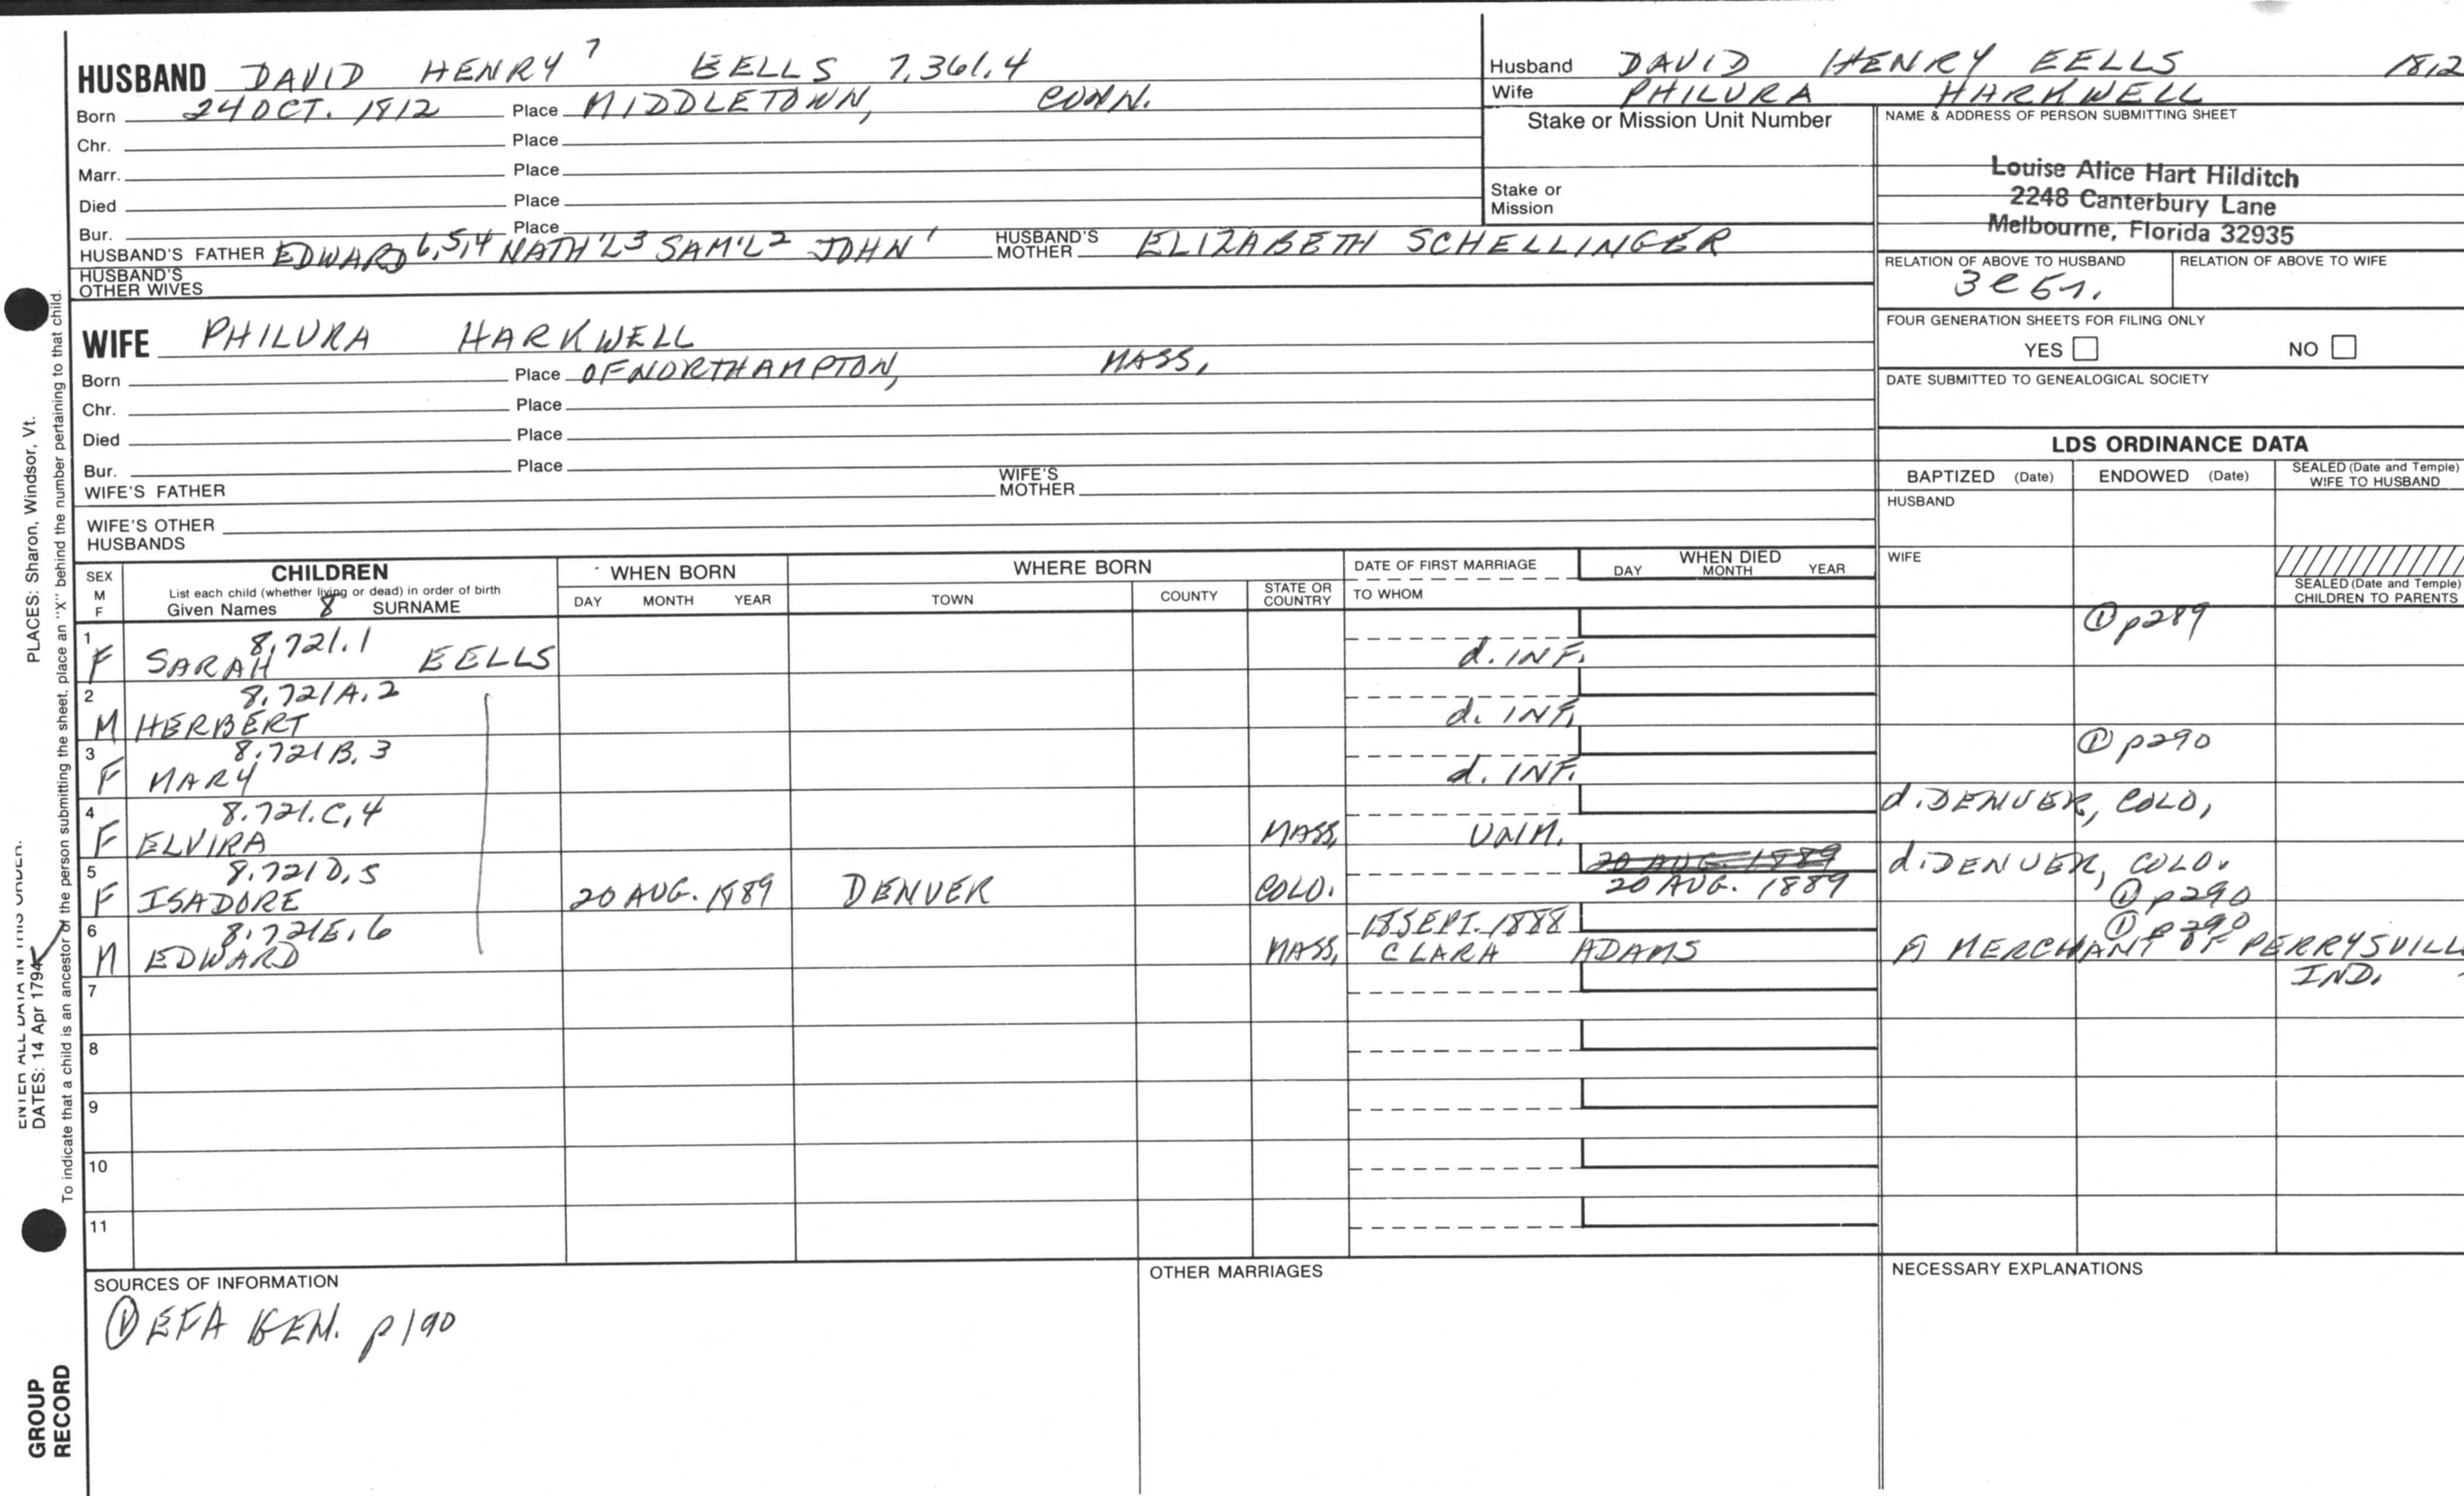 HUSBAND DAVID HENRY 7 EELLS 7,361,4
Born 24 OCT. 1812 Place MIDDLETOWN, CONN.
Chr. Place
Marr. Place
Died Place
Bur. Place
HUSBAND'S FATHER EDWARD 6,5,4 NATH'L 3 SAM'L 2 JOHN 1 HUSBAND'S MOTHER ELIZABETH SCHELLINGER
HUSBAND'S OTHER WIVES
WIFE PHILURA HARKWELL
Born Place OF NORTHAMPTON, MASS,
Chr. Place
Died Place
Bur. Place
WIFE'S FATHER WIFE'S MOTHER
WIFE'S OTHER HUSBANDS
Husband DAVID HENRY EELLS 1812
Wife PHILURA HARKWELL
Stake or Mission Unit Number
Stake or Mission
NAME & ADDRESS OF PERSON SUBMITTING SHEET
Louise Alice Hart Hilditch
2248 Canterbury Lane
Melbourne, Florida 32935
RELATION OF ABOVE TO HUSBAND RELATION OF ABOVE TO WIFE
FOUR GENERATION SHEETS FOR FILING ONLY
YES NO
DATE SUBMITTED TO GENEALOGICAL SOCIETY
LDS ORDINANCE DATA
BAPTIZED (Date) ENDOWED (Date) SEALED (Date and Temple) WIFE TO HUSBAND
HUSBAND
WIFE
SEALED (Date and Temple) CHILDREN TO PARENTS
SEX M F CHILDREN WHEN BORN WHERE BORN DATE OF FIRST MARRIAGE WHEN DIED
List each child (whether living or dead) in order of birth
Given Names 8 SURNAME DAY MONTH YEAR TOWN COUNTY STATE OR COUNTRY TO WHOM DAY MONTH YEAR
1 8,721.1 ① p289
F SARAH EELLS d. INF.
2 8,721A.2
M HERBERT d. INF.
3 8.721B.3 ① p290
F MARY d. INF.
4 8.721.C,4 d. DENVER, COLO,
F ELVIRA MASS, UNM.
5 8.721D,5 20 AUG. 1889 d. DENVER, COLO.
F ISADORE 20 AUG. 1889 DENVER COLO. 20 AUG. 1889 ① p290
6 8.721E.6 18 SEPT. 1888 ① p290
M EDWARD MASS, CLARA ADAMS A MERCHANT OF PERRYSVILL
IND.
7
8
9
10
11
SOURCES OF INFORMATION OTHER MARRIAGES NECESSARY EXPLANATIONS
① EFA GEN. p190
PLACES: Sharon, Windsor, Vt.
ENTER ALL DATA IN THIS ORDER:
DATES: 14 Apr 1794
To indicate that a child is an ancestor of the person submitting the sheet, place an "X" behind the number pertaining to that child.
GROUP
RECORD